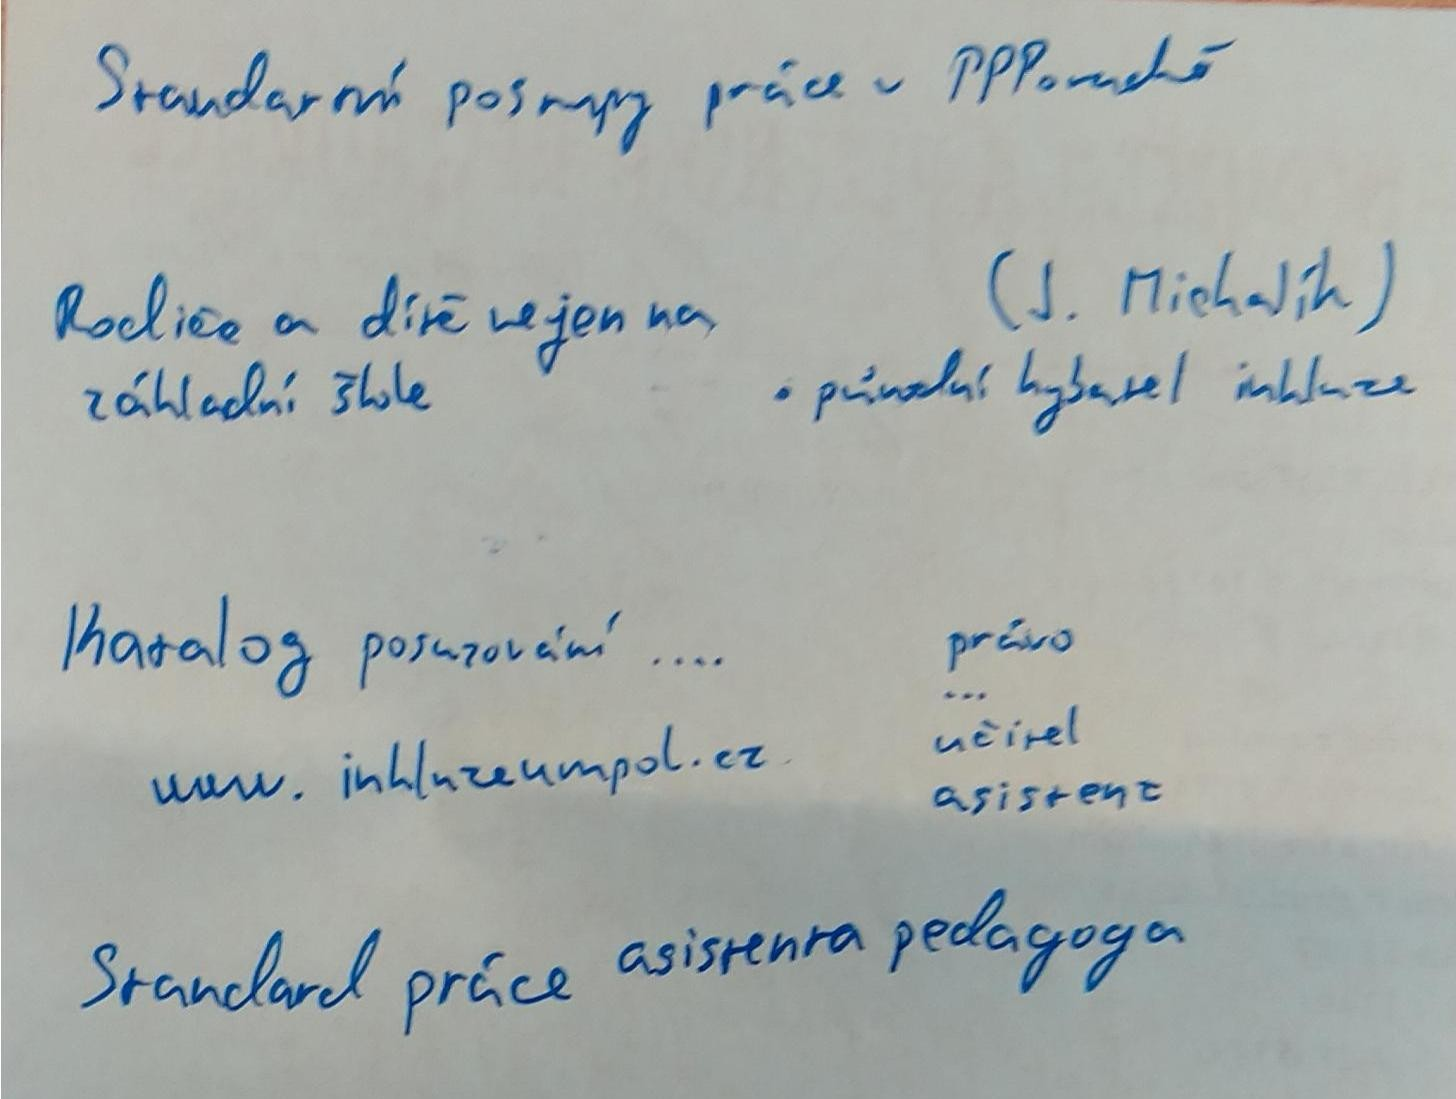 Standarní postupy práce v PPPoradně
Rodiče a dítě nejen na
základní škole
(J. Michalík)
• původní hybatel inkluze
Katalog posuzování ....
www.inkluzeumpol.cz
právo
...
učitel
asistent
Standard práce asistenta pedagoga